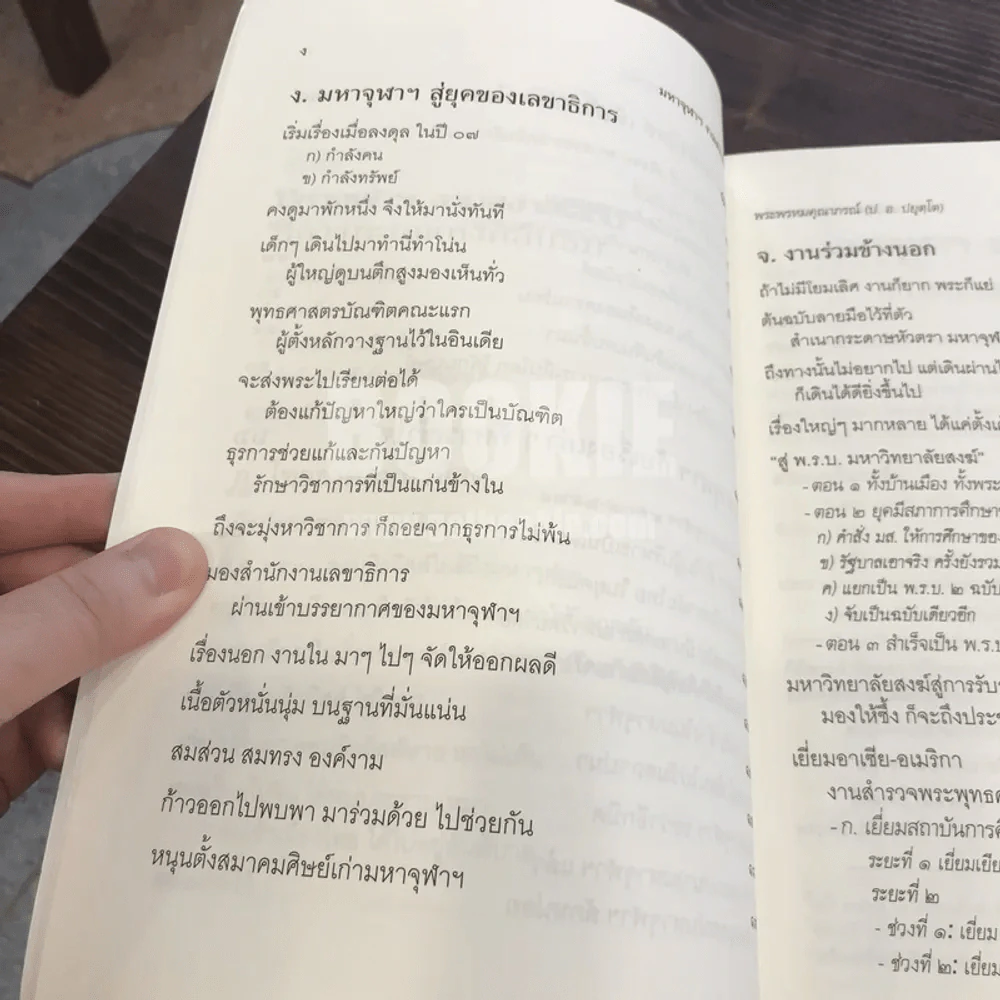 ง
ง. มหาจุฬาฯ สู่ยุคของเลขาธิการ
เริ่มเรื่องเมื่อลงดุล ในปี ๐๗
ก) กำลังคน
ข) กำลังทรัพย์
คงดูมาพักหนึ่ง จึงให้มานั่งทันที
เด็กๆ เดินไปมาทำนี่ทำโน่น
ผู้ใหญ่ดูบนตึกสูงมองเห็นทั่ว
พุทธศาสตรบัณฑิตคณะแรก
ผู้ตั้งหลักวางฐานไว้ในอินเดีย
จะส่งพระไปเรียนต่อได้
ต้องแก้ปัญหาใหญ่ว่าใครเป็นบัณฑิต
ธุรการช่วยแก้และกันปัญหา
รักษาวิชาการที่เป็นแก่นข้างใน
ถึงจะมุ่งหาวิชาการ ก็ถอยจากธุรการไม่พ้น
มองสำนักงานเลขาธิการ
ผ่านเข้าบรรยากาศของมหาจุฬาฯ
เรื่องนอก งานใน มาๆ ไปๆ จัดให้ออกผลดี
เนื้อตัวหนั่นนุ่ม บนฐานที่มั่นแน่น
สมส่วน สมทรง องค์งาม
ก้าวออกไปพบพา มาร่วมด้วย ไปช่วยกัน
หนุนตั้งสมาคมศิษย์เก่ามหาจุฬาฯ
มหาจุฬาฯ
พระพรหมคุณาภรณ์ (ป. อ. ปยุตฺโต)
จ. งานร่วมข้างนอก
ถ้าไม่มีโยมเลิศ งานก็ยาก พระก็แย่
ต้นฉบับลายมือไว้ที่ตัว
สำเนากระดาษหัวตรา มหาจุฬ
ถึงทางนั้นไม่อยากไป แต่เดินผ่าน
ก็เดินได้ดียิ่งขึ้นไป
เรื่องใหญ่ๆ มากหลาย ได้แค่ตั้งเค้
"สู่ พ.ร.บ. มหาวิทยาลัยสงฆ์"
- ตอน ๑ ทั้งบ้านเมือง ทั้งพระ
- ตอน ๒ ยุคมีสภาการศึกษา
ก) คำสั่ง มส. ให้การศึกษาของ
ข) รัฐบาลเอาจริง ครั้งยังรวม
ค) แยกเป็น พ.ร.บ. ๒ ฉบับ
ง) จับเป็นฉบับเดียวอีก
- ตอน ๓ สำเร็จเป็น พ.ร.บ
มหาวิทยาลัยสงฆ์สู่การรับ
มองให้ซึ้ง ก็จะถึงประ
เยี่ยมอาเซีย-อเมริกา
งานสำรวจพระพุทธศ
- ก. เยี่ยมสถาบันการศึ
ระยะที่ ๑ เยี่ยมเยีย
ระยะที่ ๒
- ช่วงที่ ๑: เยี่ยม
- ช่วงที่ ๒: เยี่ยม